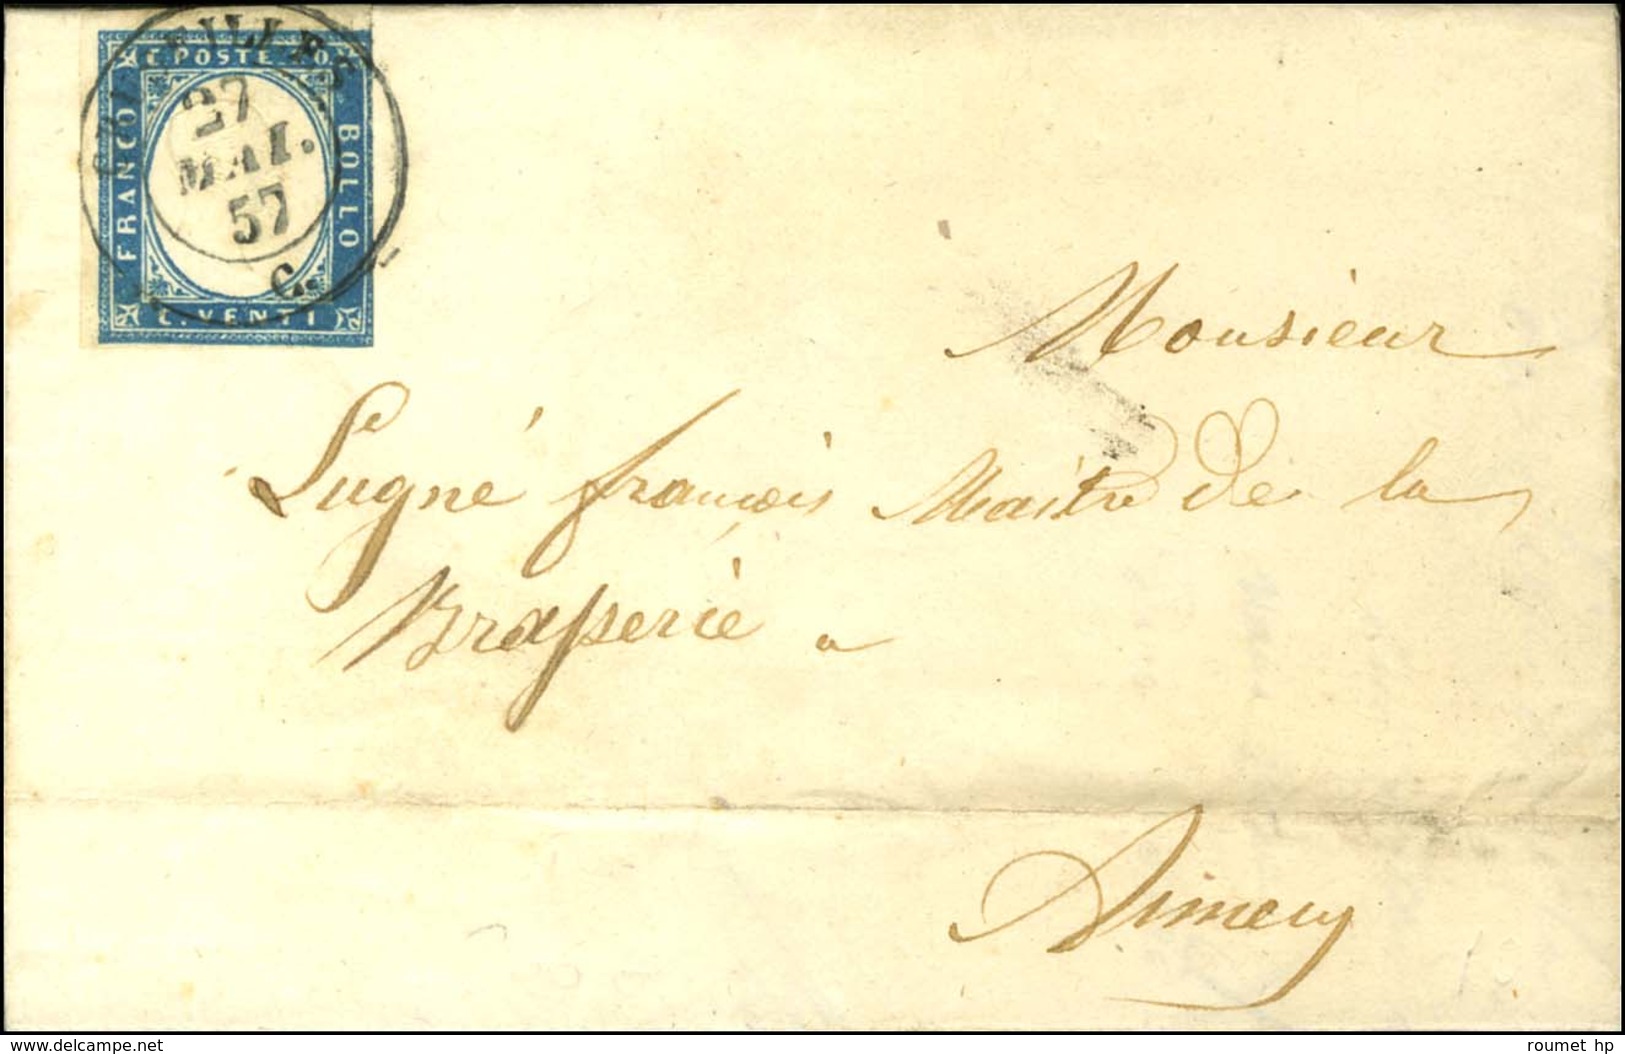 C. POSTE 20
FRANCO
BOLLO
C. VENTI
27
MAI.
57
C.
Monsieur
Lugné françois Maitre de la
Draperie a
Annecy
roumet hp